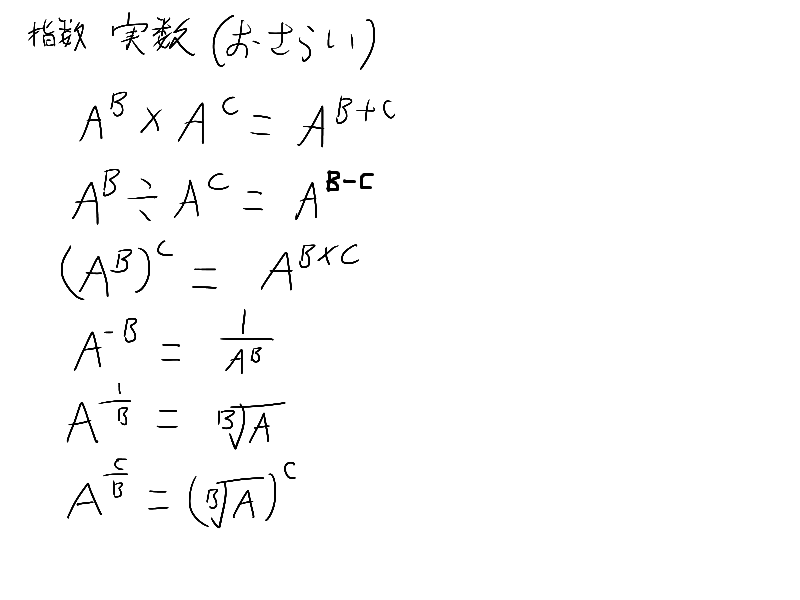 指数 実数 (おさらい)
A^B × A^C = A^{B+C}
A^B ÷ A^C = A^{B-C}
(A^B)^C = A^{B×C}
A^{-B} = \frac{1}{A^B}
A^{\frac{1}{B}} = \sqrt[B]{A}
A^{\frac{C}{B}} = (\sqrt[B]{A})^C